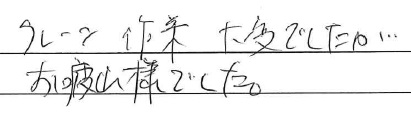 クレーン 作業 大変でしたね…
お疲れ様でした。